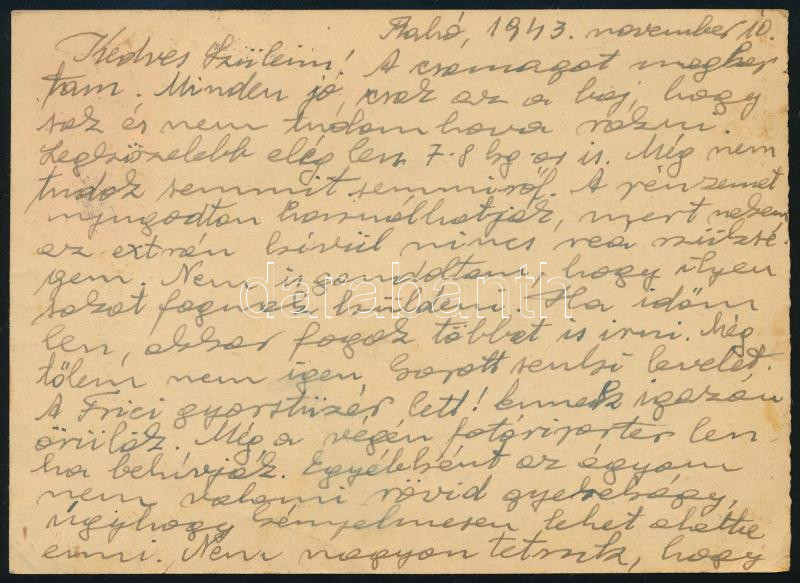 Rahó, 1943. november 10.
Kedves Szüleim! A csomagot megkap-
tam. Minden jó, csak az a baj, hogy
sok és nem tudom hova rakni.
Legközelebb elég lesz 7-8 kg-os is. Még nem
tudok semmit semmiről. A pénzemet
nyugodtan használhatják, mert nekem
az extrán kívül nincs rea szüksé-
gem. Nem is gondoltam, hogy ilyen
sokat fognak küldeni. Ha időm
lesz, akkor fogok többet is irni. Még
tőlem nem igen kapott senki levelet.
A Frici gyorstüzér lett! ennek igazán
örülök. Még a végén fotóriporter lesz
ha behívják. Egyébként az ágyam
nem valami rövid gyerekágy,
úgyhogy kényelmesen lehet alatta
enni. Nem nagyon tetszik, hogy
darabanth